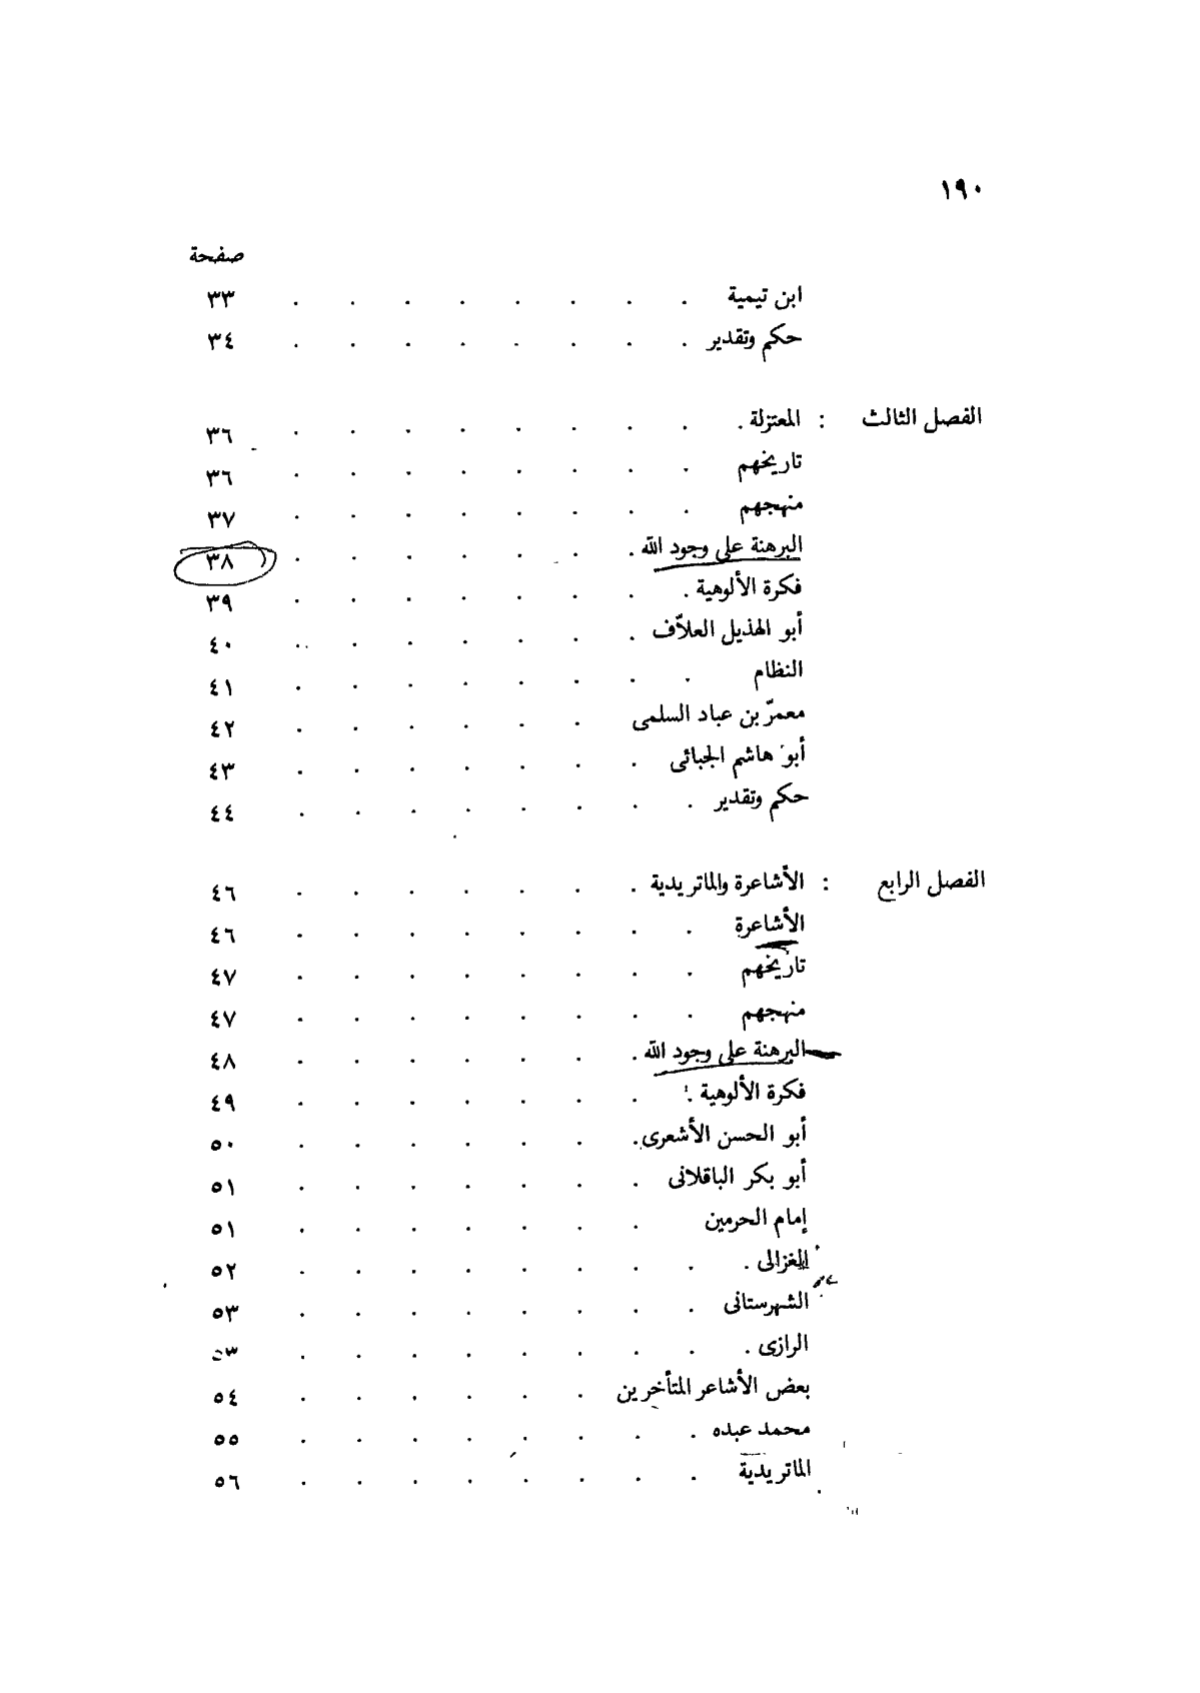 ١٩٠
صفحة
ابن تيمية . . . . . . . . ٣٣
حكم وتقدير . . . . . . . . ٣٤
الفصل الثالث : المعتزلة . . . . . . . . . ٣٦
تاريخهم . . . . . . . . ٣٦
منهجهم . . . . . . . . ٣٧
البرهنة على وجود الله . . . . . . . ٣٨
فكرة الألوهية . . . . . . . . ٣٩
أبو الهذيل العلاّف . . . . . . . ٤٠
النظام . . . . . . . . ٤١
معمرّ بن عباد السلمى . . . . . . ٤٢
أبو هاشم الجبائى . . . . . . . ٤٣
حكم وتقدير . . . . . . . . ٤٤
الفصل الرابع : الأشاعرة والماتريدية . . . . . . . ٤٦
الأشاعرة . . . . . . . . ٤٦
تاريخهم . . . . . . . . ٤٧
منهجهم . . . . . . . . ٤٧
البرهنة على وجود الله . . . . . . . ٤٨
فكرة الألوهية . . . . . . . . ٤٩
أبو الحسن الأشعرى . . . . . . . ٥٠
أبو بكر الباقلانى . . . . . . . ٥١
إمام الحرمين . . . . . . . ٥١
الغزالى . . . . . . . . . ٥٢
الشهرستانى . . . . . . . . ٥٣
الرازى . . . . . . . . . ٥٣
بعض الأشاعر المتأخرين . . . . . . ٥٤
محمد عبده . . . . . . . . ٥٥
الماتريدية . . . . . . . . ٥٦